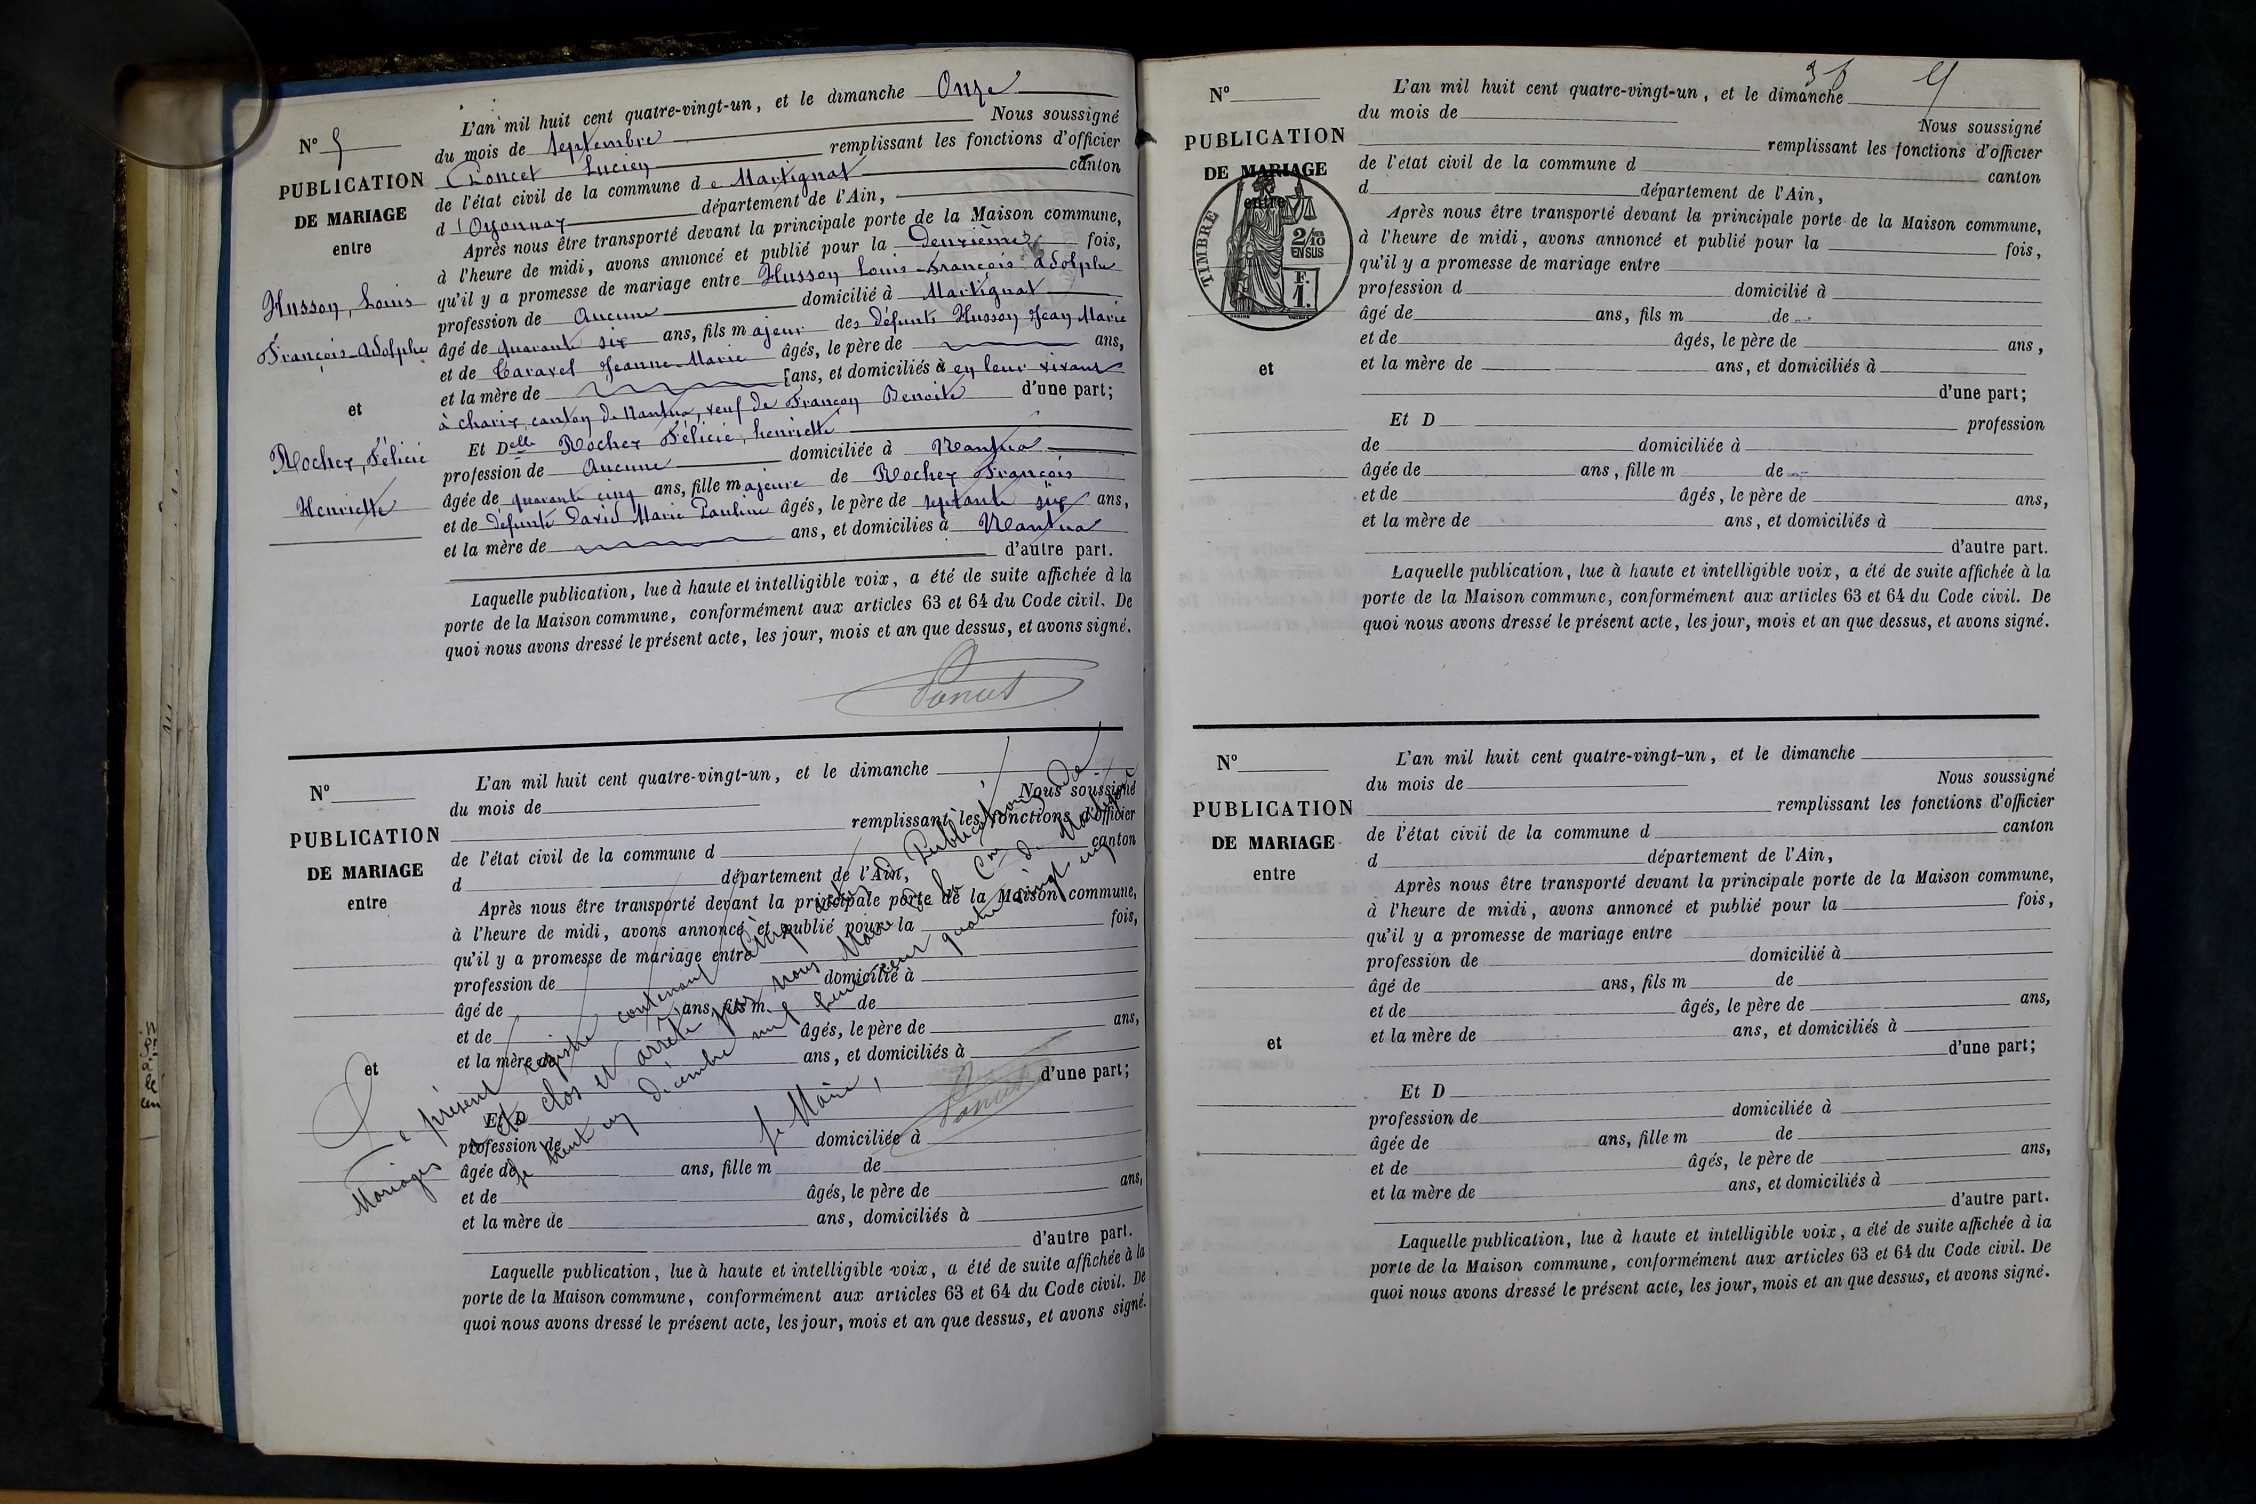 N° 5
PUBLICATION
DE MARIAGE
entre
Husson, Louis
François-Adolphe
et
Rocher, Félicie
Henriette
L'an mil huit cent quatre-vingt-un, et le dimanche Onze
du mois de Septembre Nous soussigné
Poncet Lucien remplissant les fonctions d'officier
de l'état civil de la commune de Martignat canton
d'Oyonnax département de l'Ain,
Après nous être transporté devant la principale porte de la Maison commune,
à l'heure de midi, avons annoncé et publié pour la Deuxième fois,
qu'il y a promesse de mariage entre Husson Louis-François-Adolphe
profession de Aucune domicilié à Martignat
âgé de quarante six ans, fils majeur des défunts Husson Jean Marie
et de Caravel Jeanne-Marie âgés, le père de ans,
et la mère de [ans, et domiciliés à en leur vivant
à charix, canton de Nantua, veuf de Françon Benoite d'une part;
Et Delle Rocher Félicie, henriette
profession de Aucune domiciliée à Nantua
âgée de quarante cinq ans, fille majeure de Rocher François
et de défunte David Marie Pauline âgés, le père de septante six ans,
et la mère de ans, et domiciliés à Nantua
d'autre part.
Laquelle publication, lue à haute et intelligible voix, a été de suite affichée à la
porte de la Maison commune, conformément aux articles 63 et 64 du Code civil. De
quoi nous avons dressé le présent acte, les jour, mois et an que dessus, et avons signé.
Poncet
N°
PUBLICATION
DE MARIAGE
entre
et
L'an mil huit cent quatre-vingt-un, et le dimanche
du mois de Nous soussigné
remplissant les fonctions d'officier
de l'état civil de la commune d canton
d département de l'Ain,
Après nous être transporté devant la principale porte de la Maison commune,
à l'heure de midi, avons annoncé et publié pour la fois,
qu'il y a promesse de mariage entre
profession de domicilié à
âgé de ans, fils m de
et de âgés, le père de ans,
et la mère de ans, et domiciliés à
d'une part;
Et D
profession de domiciliée à
âgée de ans, fille m de
et de âgés, le père de ans,
et la mère de ans, domiciliés à
d'autre part.
Laquelle publication, lue à haute et intelligible voix, a été de suite affichée à la
porte de la Maison commune, conformément aux articles 63 et 64 du Code civil. De
quoi nous avons dressé le présent acte, les jour, mois et an que dessus, et avons signé.
Le présent registre contenant actes Publications de
Mariages a été clos et arrêté par nous Maire de la Cne de Martignat
le trente un décembre mil huit cent quatre vingt un
Le Maire,
Poncet
36
N°
PUBLICATION
DE MARIAGE
entre
TIMBRE
2/10 EN SUS
F. 1.
et
L'an mil huit cent quatre-vingt-un, et le dimanche
du mois de
Nous soussigné
remplissant les fonctions d'officier
de l'état civil de la commune d canton
d département de l'Ain,
Après nous être transporté devant la principale porte de la Maison commune,
à l'heure de midi, avons annoncé et publié pour la fois,
qu'il y a promesse de mariage entre
profession d domicilié à
âgé de ans, fils m de
et de âgés, le père de ans,
et la mère de ans, et domiciliés à
d'une part;
Et D profession
de domiciliée à
âgée de ans, fille m de
et de âgés, le père de ans,
et la mère de ans, et domiciliés à
d'autre part.
Laquelle publication, lue à haute et intelligible voix, a été de suite affichée à la
porte de la Maison commune, conformément aux articles 63 et 64 du Code civil. De
quoi nous avons dressé le présent acte, les jour, mois et an que dessus, et avons signé.
N°
PUBLICATION
DE MARIAGE
entre
et
L'an mil huit cent quatre-vingt-un, et le dimanche
du mois de Nous soussigné
remplissant les fonctions d'officier
de l'état civil de la commune d canton
d département de l'Ain,
Après nous être transporté devant la principale porte de la Maison commune,
à l'heure de midi, avons annoncé et publié pour la fois,
qu'il y a promesse de mariage entre
profession de domicilié à
âgé de ans, fils m de
et de âgés, le père de ans,
et la mère de ans, et domiciliés à
d'une part;
Et D
profession de domiciliée à
âgée de ans, fille m de
et de âgés, le père de ans,
et la mère de ans, et domiciliés à
d'autre part.
Laquelle publication, lue à haute et intelligible voix, a été de suite affichée à la
porte de la Maison commune, conformément aux articles 63 et 64 du Code civil. De
quoi nous avons dressé le présent acte, les jour, mois et an que dessus, et avons signé.